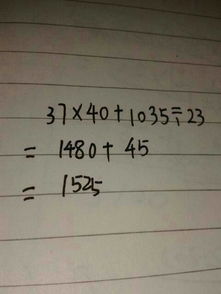 37×40+1035÷23
= 1480+45
= 1525